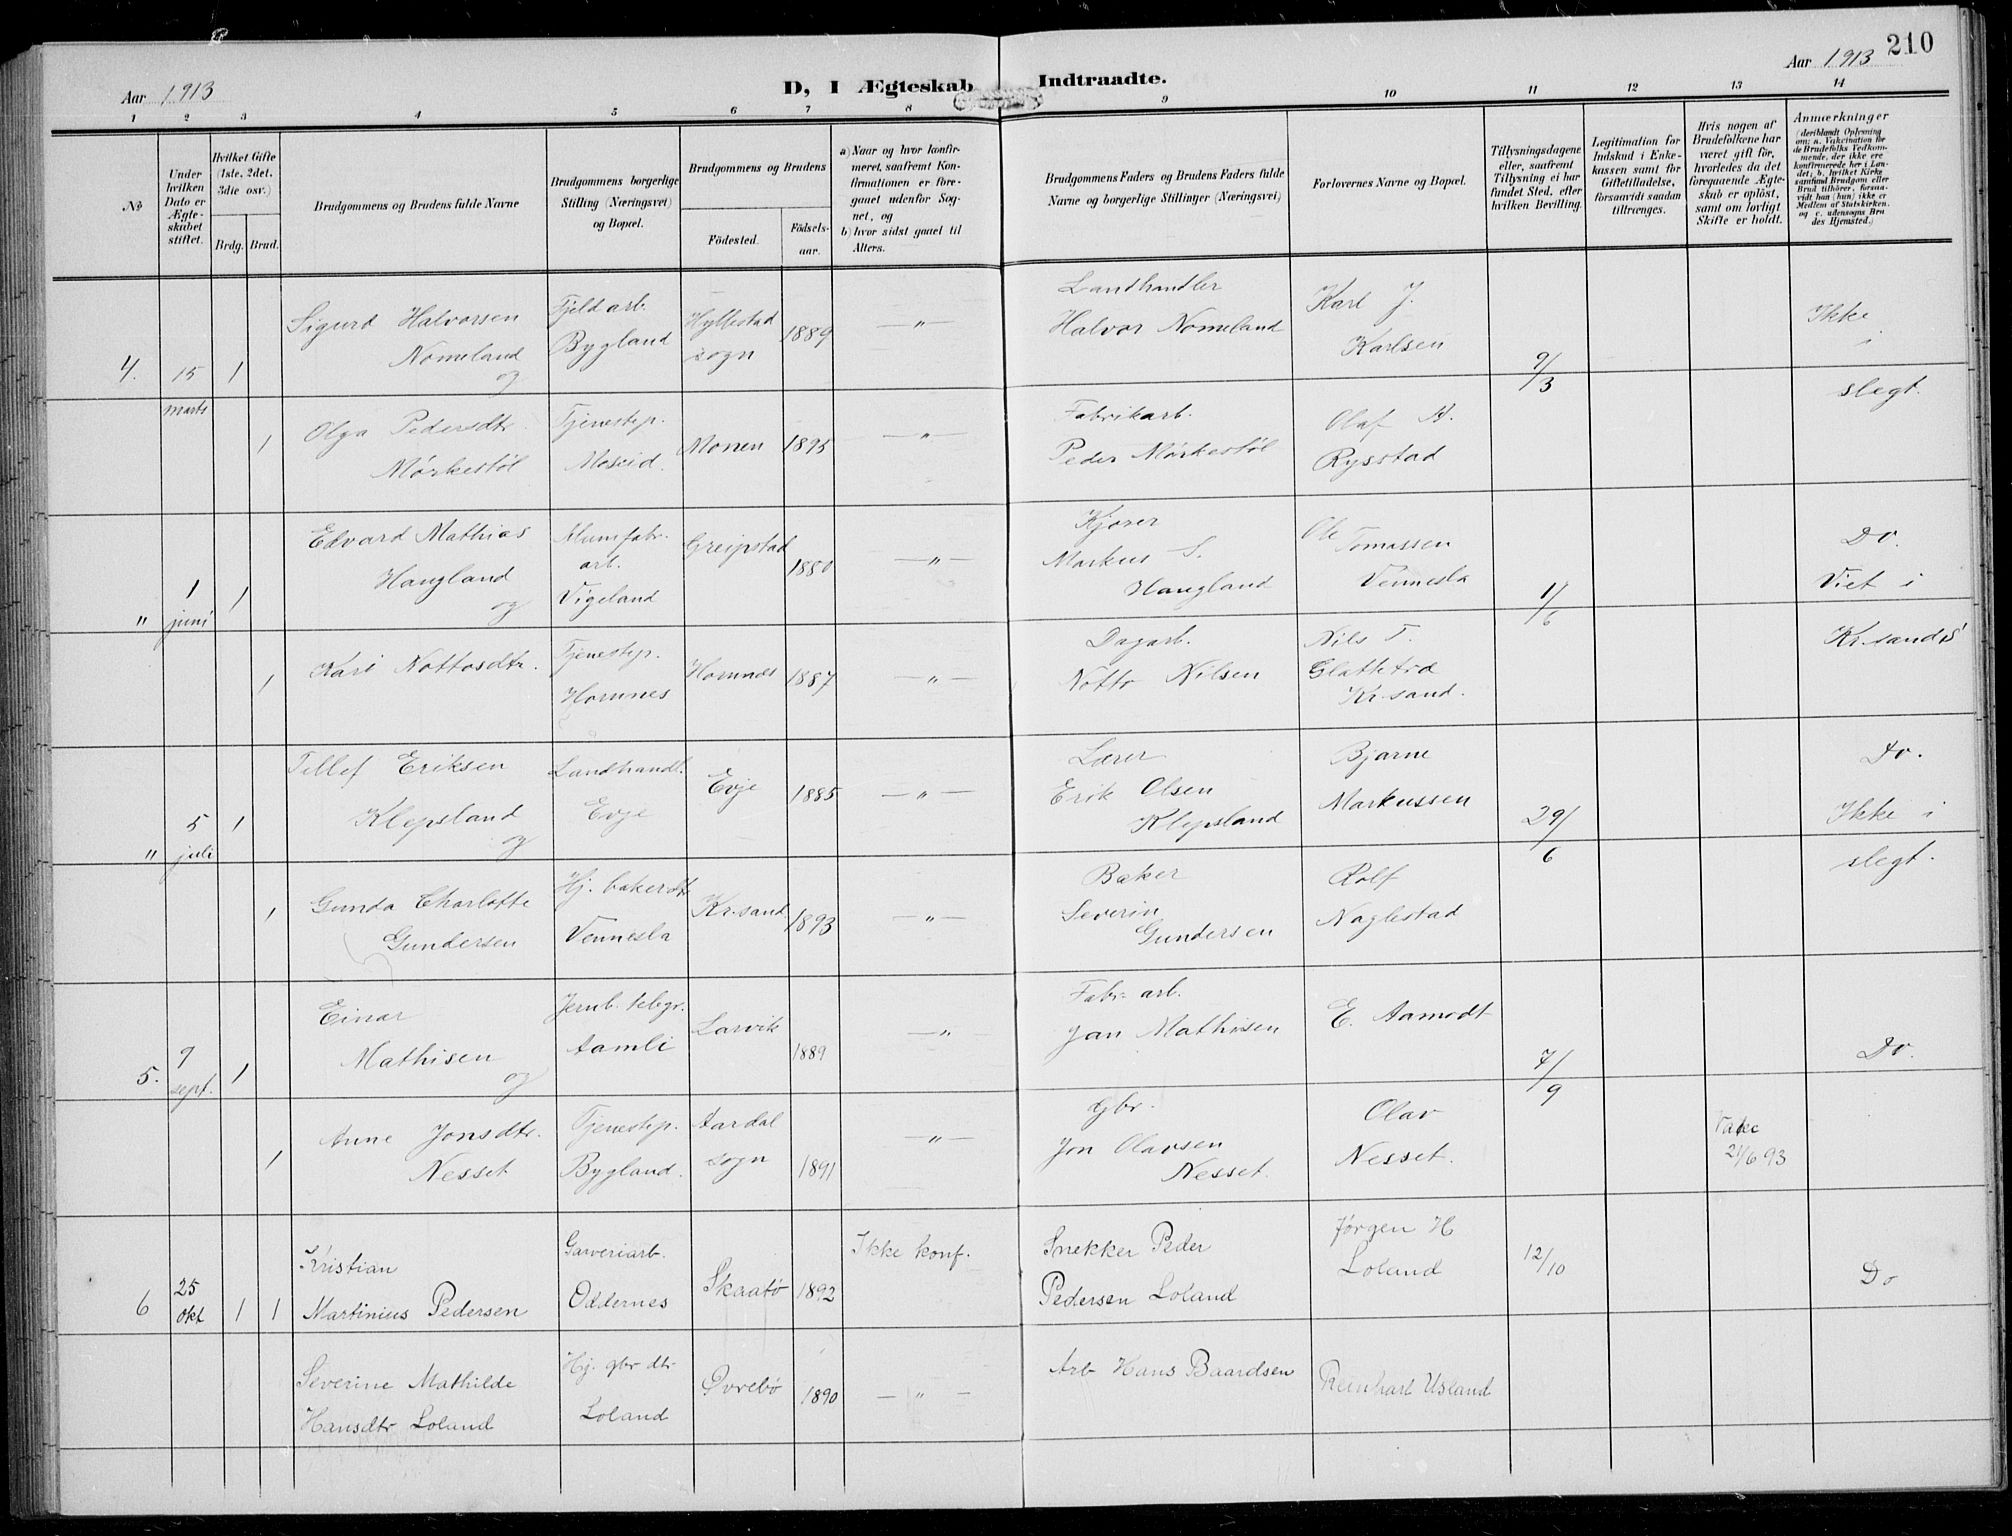 210
Aar 1913
D, I Ægteskab Indtraadte.
Aar 1913
1 2 3 4 5 6 7 8 9 10 11 12 13 14
No
Under hvilken Dato er Ægteskabet stiftet.
Hvilket Gifte (1ste, 2det, 3die osv.)
Brdg. Brud.
Brudgommens og Brudens fulde Navne
Brudgommens borgerlige Stilling (Næringsvei) og Bopæl.
Brudgommens og Brudens
Födested.
Födselsaar.
a) Naar og hvor konfirmeret, saafremt Konfirmationen er foregaaet udenfor Sognet, og
b) hvor sidst gaaet til Alters.
Brudgommens Faders og Brudens Faders fulde Navne og borgerlige Stillinger (Næringsvei)
Forlovernes Navne og Bopæl.
Tillysningsdagene eller, saafremt Tillysning ei har fundet Sted, efter hvilken Bevilling.
Legitimation for Indskud i Enkekassen samt for Giftetilladelse, forsaavidt saadan tiltrænges.
Hvis nogen af Brudefolkene har været gift för, hvorledes da det foregaaende Ægteskab er oplöst, samt om lovligt Skifte er holdt.
Anmerkninger
(deriblandt Oplysning om: a. Vakcination for de Brudefolks Vedkommende, der ikke ere konfirmerede her i Landet; b. hvilket Kirkesamfund Brudgom eller Brud tilhörer, forsaavidt han (hun) ikke er Medlem af Statskirken. og c. udensogns Brudes Hjemsted.)
4. 15 marts 1
Sigurd Halvorsen
Nomeland
og
Fjeldarb.
Bygland
Hyllestad
sogn
1889
— " —
Landhandler
Halvor Nomeland
Karl J.
Karlsen
9/3
Ikke
i
slegt.
1
Olga Pedersdtr.
Mørkestøl
Tjenestep.
Moseid.
Monen
1895
— " —
Fabrikarb.
Peder Mørkestøl
Olaf
Rysstad
" 1 juni 1
Edvard Mathias
Haugland
og
Alumfabr.
arb.
Vigeland
Greipstad
1880
— " —
Kjører
Markus S.
Haugland
Ole
Tomassen
Vennesla
1/6
Do.
Viet i
Kr.sand S
1
Kari Nottosdtr.
Tjenestep.
Hornnes
Hornnes
1887
— " —
Dagarb.
Notto Nilsen
Nils T.
Glattetræ
Kr.sand.
" 5 juli 1
Tellef Eriksen
Klepsland
og
Landhandl.
Evje
Evje
1885
— " —
Lærer
Erik Olsen
Klepsland
Bjarne
Markussen
29/6
Do.
Ikke i
slegt.
1
Gunda Charlotte
Gundersen
Hj. bakerdtr
Vennesla
Kr.sand
1893
— " —
Baker
Severin
Gundersen
Rolf
Naglestad
5. 9 sept. 1
Einar
Mathisen
og
Jernb. telegr.
Aamli
Larvik
1889
— " —
Fabr. arb.
Jan Mathisen
E. Aamodt
7/9
Do.
1
Anne Jonsdtr.
Nesset
Tjenestep.
Bygland.
Aardal
sogn
1891
— " —
Gbr.
Jon Olavsen
Nesset.
Olav
Nesset.
21/6 93
6 25 okt 1 1
Kristian
Martinius Pedersen
Garveriarb.
Oddernes
Skaatø
1892
Ikke konf.
Snekker Peder
Pedersen Loland
Jørgen H
Loland
12/10
Do
Severine Mathilde
Hansdtr Loland
Hj. gbr dtr
Loland
Øvrebø
1890
— " —
Arb Hans Baardsen
Reinhart Usland